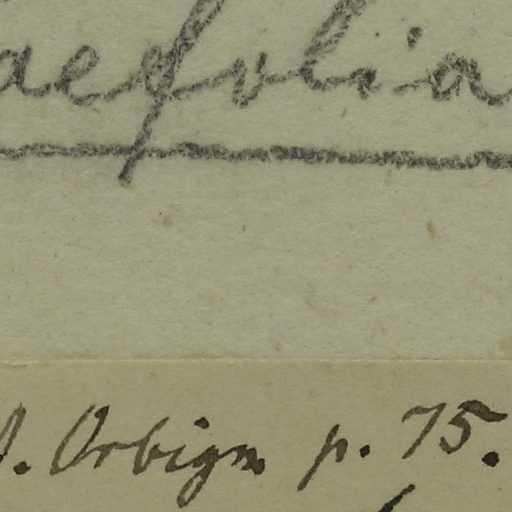 aefolia
. Orbign p. 75.